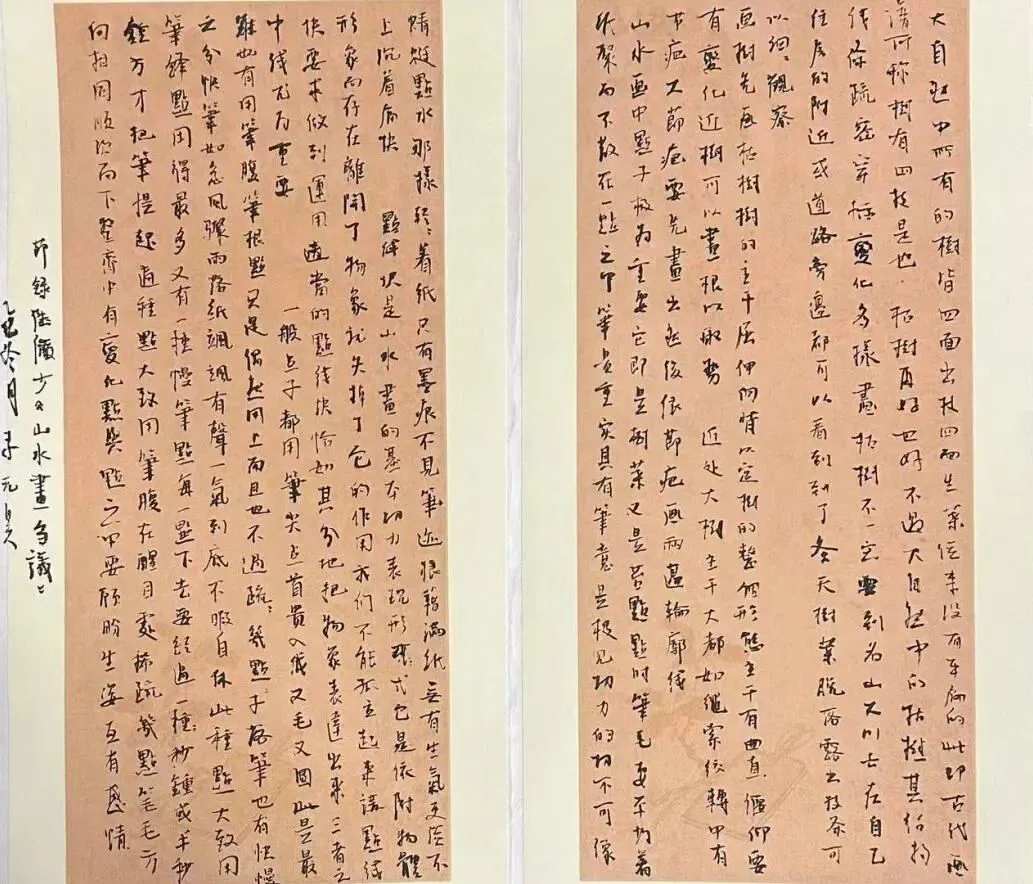 大自然中所有的樹皆四面出枝四面生葉從來没有平面的此即古代画
論所称樹有四枝是也 枯樹再好也好不過大自然中的枯樹其结构
线條疏密穿插變化多樣畫枯樹不一定要到名山大川去在自己
住房的附近或道路旁邊都可以看到到了冬天樹葉脱落露出枝条可
以细細觀察
画樹先画枯樹樹的主干屈伸俯背以定樹的整個形態主干有曲直偃仰要
有變化近樹可以畫根以取勢 近处大樹主干大都如繩索绞轉中有
节疤大節疤要先畫出然後依節疤画两邊輪廓线
山水画中點子极为重要它即是樹葉又是苔點點时筆毛要平均着
於聚而不散在一點之中筆是重实具有筆意是极见功力的切不可像
蜻蜓點水那樣轻轻着紙只有墨痕不見筆迹狠籍满纸毫有生氣更应不
上沉着痛快 點线块是山水畫的基本功力表现形式它是依附物體
形象而存在離開了物象就失掉了它的作用我们不能孤立起来講點线
块要求做到運用適當的點线块恰如其分地把物象表達出来三者之
中线尤为重要 一般点子都用筆尖点首贵入纸又毛又圆此是最
難也有用筆腹筆根點只是偶然用上而且也不過疏疏幾點子落筆也有快慢
之分快筆如急風驟雨落纸颯颯有聲一氣到底不暇自休此種點大致用
筆鋒點用得最多又有一種慢筆點每一點下去要经過一種秒鐘或半秒
鐘方才把筆提起這種點大致用筆腹在醒目處稀疏幾點筆毛方
向相同顺次而下整齊中有變化點與點之中要顾盼生姿互有感情
节錄陸儼少公山水畫芻議
乙巳冬月 于元昊